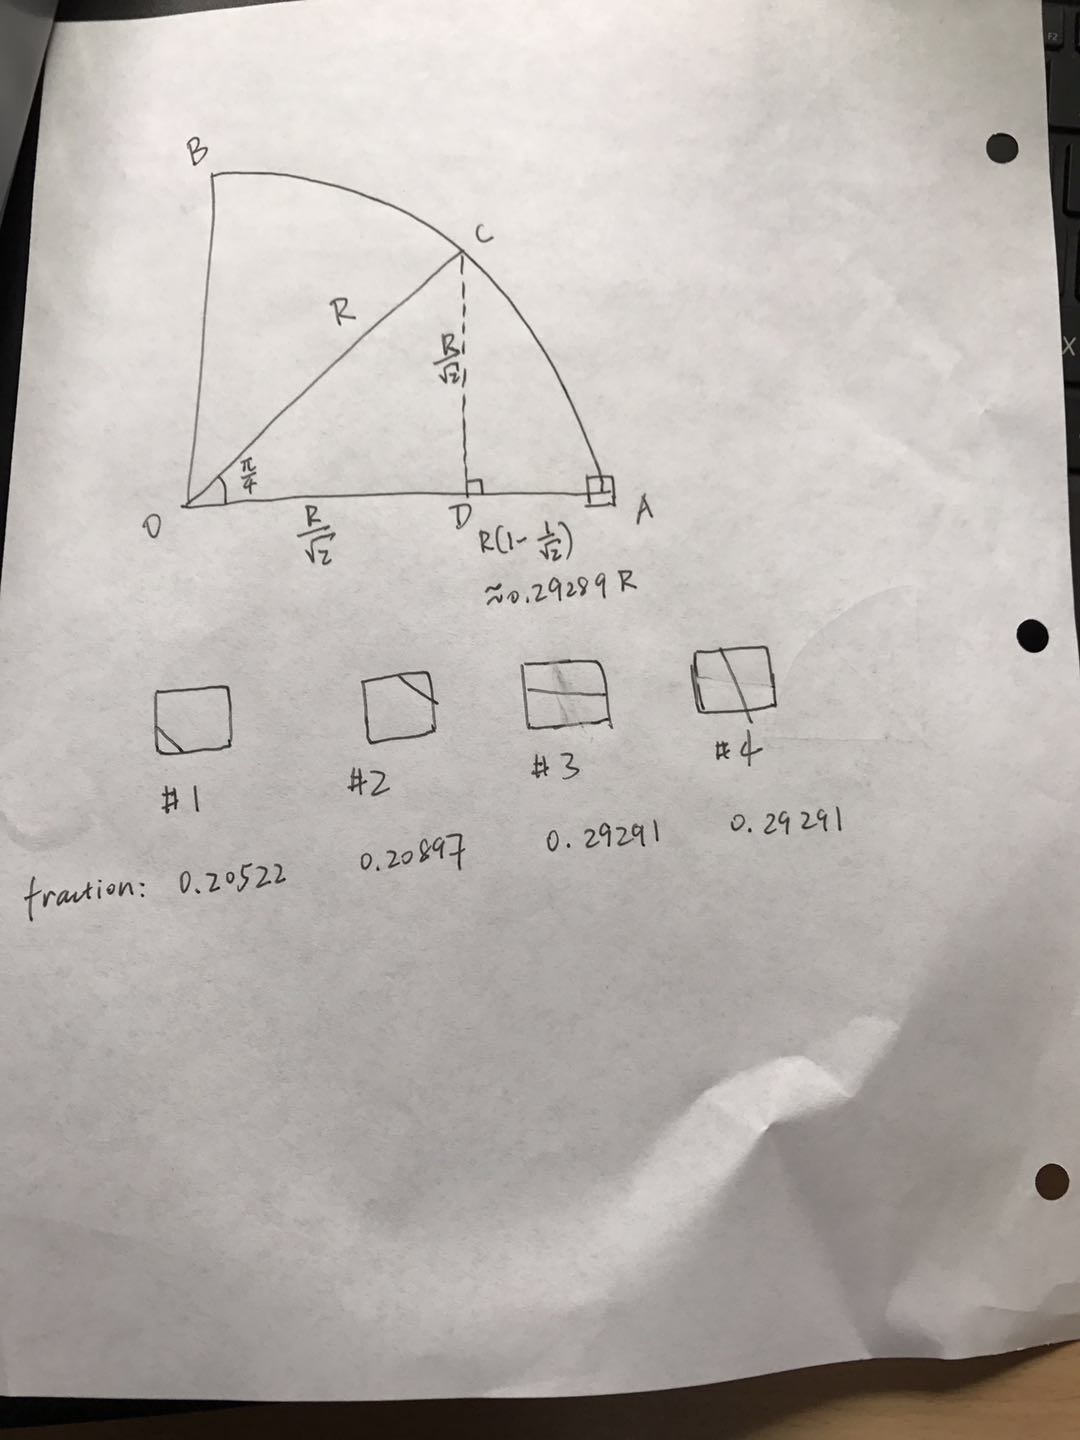 B
C
R
R/√2
π/4
O
R/√2
D
A
R(1-1/√2)
≈0.29289R
#1
#2
#3
#4
fraction: 0.20522 0.20897 0.29291 0.29291
F2
X